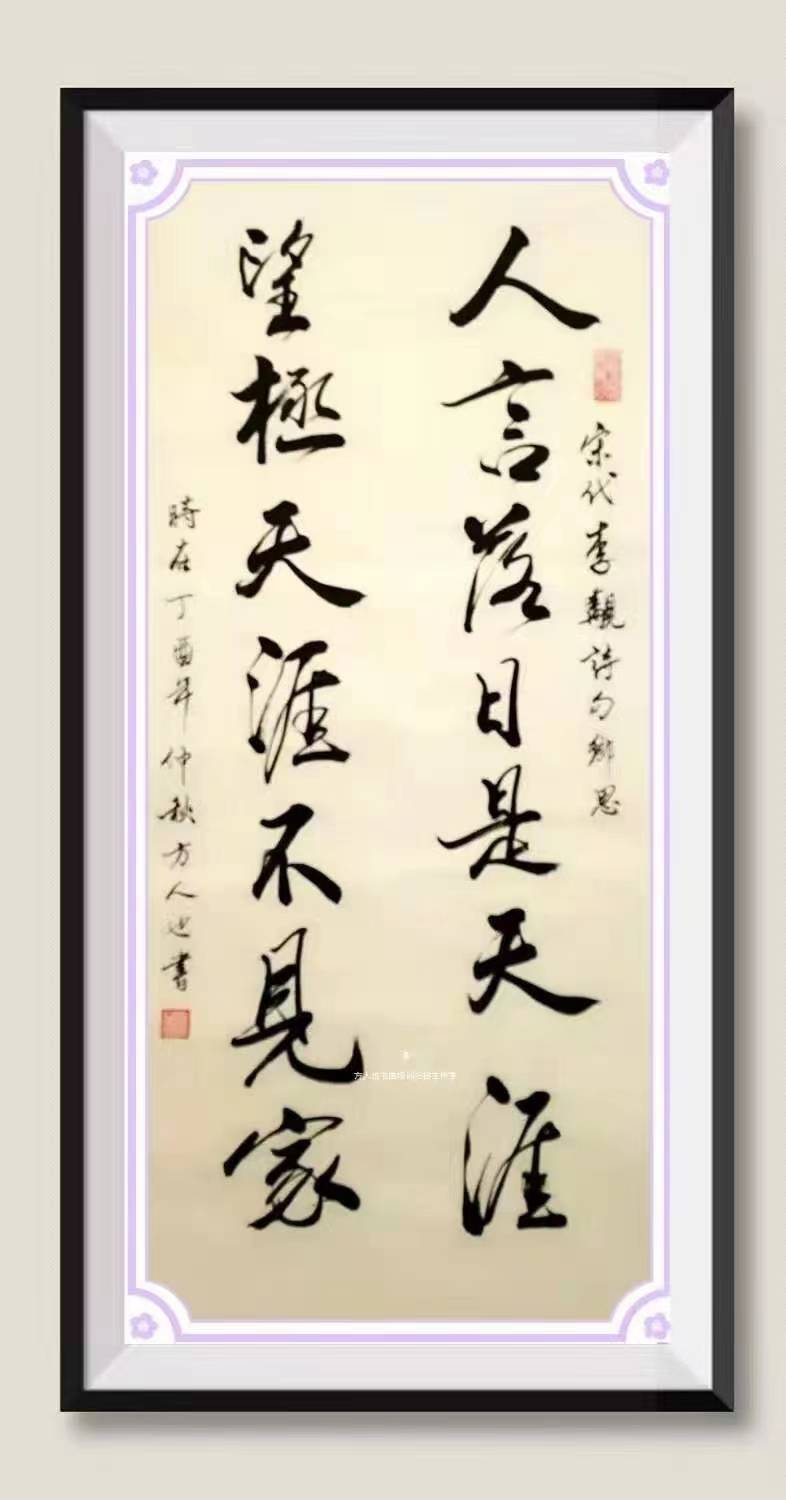 人言落日是天涯
宋代李覯詩句鄉思
望極天涯不見家
時在丁酉年仲秋方人也書